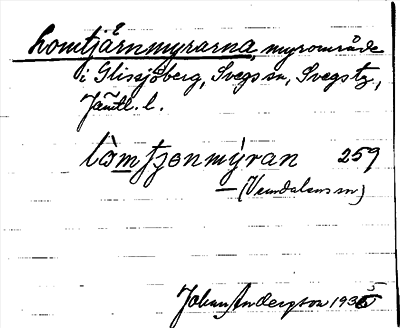 Lomtjärnmyrarna, myrområde
i Glissjöberg, Svegs sn, Svegs tg,
Jämtl. l.
lòmtjenmýran 259
— (Vemdalens sn)
Johan Anderson 1935